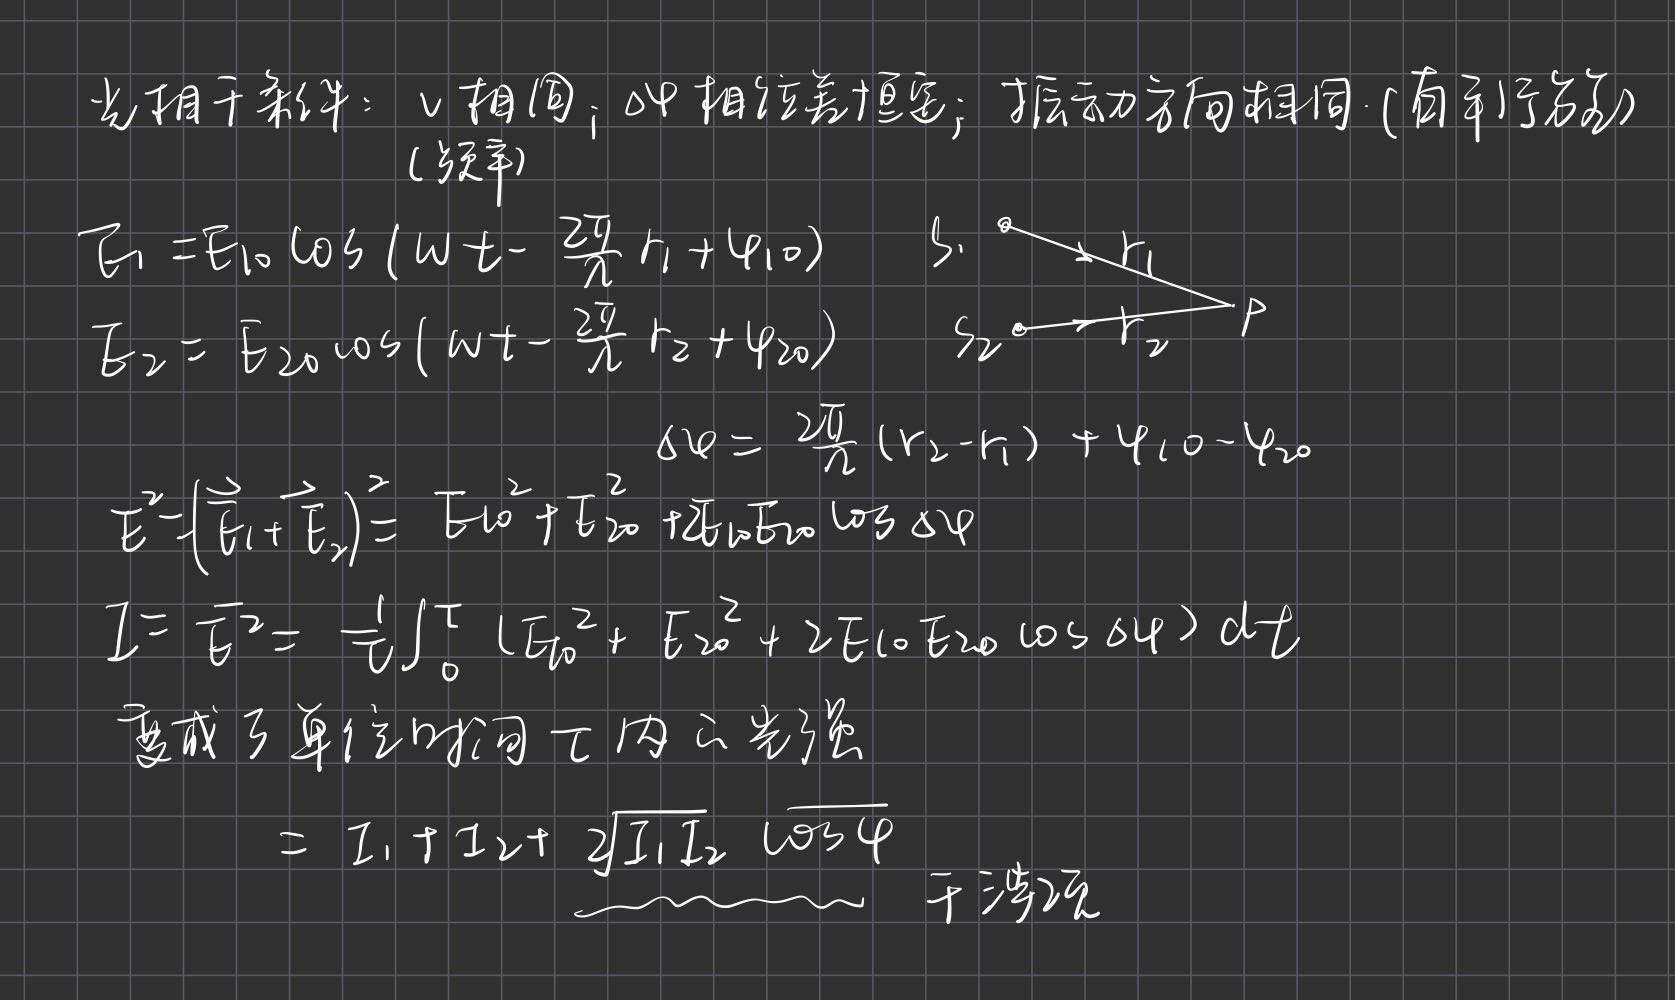 光相干条件: ν相同; Δφ相位差恒定; 振动方向相同.(有平行分量)
(频率)
E₁ = E₁₀ cos(ωt - 2π/λ r₁ + φ₁₀)
S₁ r₁
E₂ = E₂₀ cos(ωt - 2π/λ r₂ + φ₂₀)
S₂ r₂ P
Δφ = 2π/λ (r₂-r₁) + φ₁₀-φ₂₀
E² = (E⃗₁+E⃗₂)² = E₁₀² + E₂₀² + 2E₁₀E₂₀ cosΔφ
I = E̅² = 1/τ ∫₀^τ (E₁₀² + E₂₀² + 2E₁₀E₂₀ cosΔφ) dt
变成了单位时间τ内的光强
= I₁ + I₂ + 2√(I₁I₂) \overline{cosφ}
干涉项